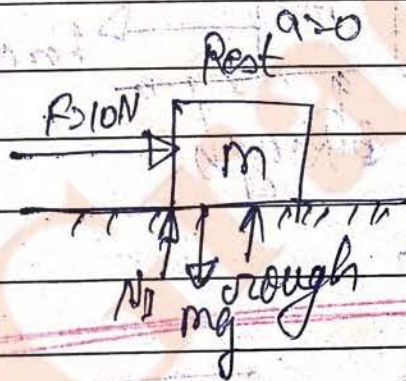 Rest a=0
F=10N
m
N
mg rough